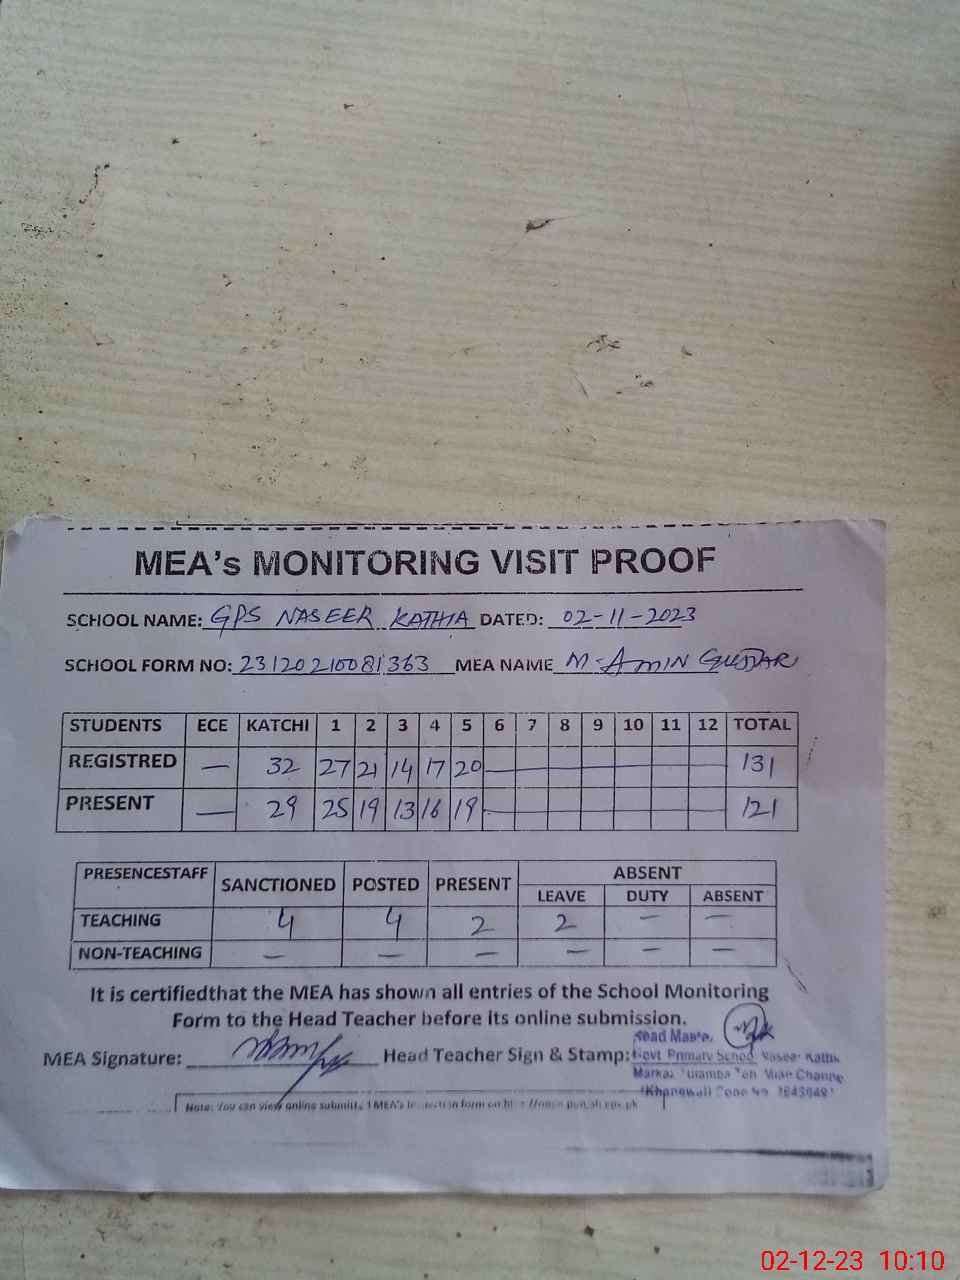 MEA's MONITORING VISIT PROOF
SCHOOL NAME: GPS NASEER KATHIA DATED: 02-11-2023
SCHOOL FORM NO: 23120210081363 MEA NAME M-AMIN GUJJAR
STUDENTS ECE KATCHI 1 2 3 4 5 6 7 8 9 10 11 12 TOTAL
REGISTRED — 32 27 21 14 17 20 — 131
PRESENT — 29 25 19 13 16 19 — 121
PRESENCESTAFF SANCTIONED POSTED PRESENT ABSENT
LEAVE DUTY ABSENT
TEACHING 4 4 2 2 — —
NON-TEACHING — — — — — —
It is certifiedthat the MEA has shown all entries of the School Monitoring
Form to the Head Teacher before its online submission.
MEA Signature: Head Teacher Sign & Stamp:
Head Master
Govt Primary School Naseer Kathia
Markaz Tulamba Teh Mian Channu
(Khanewal) Code No
Note: You can view online submitted MEA's Inspection form on
02-12-23 10:10